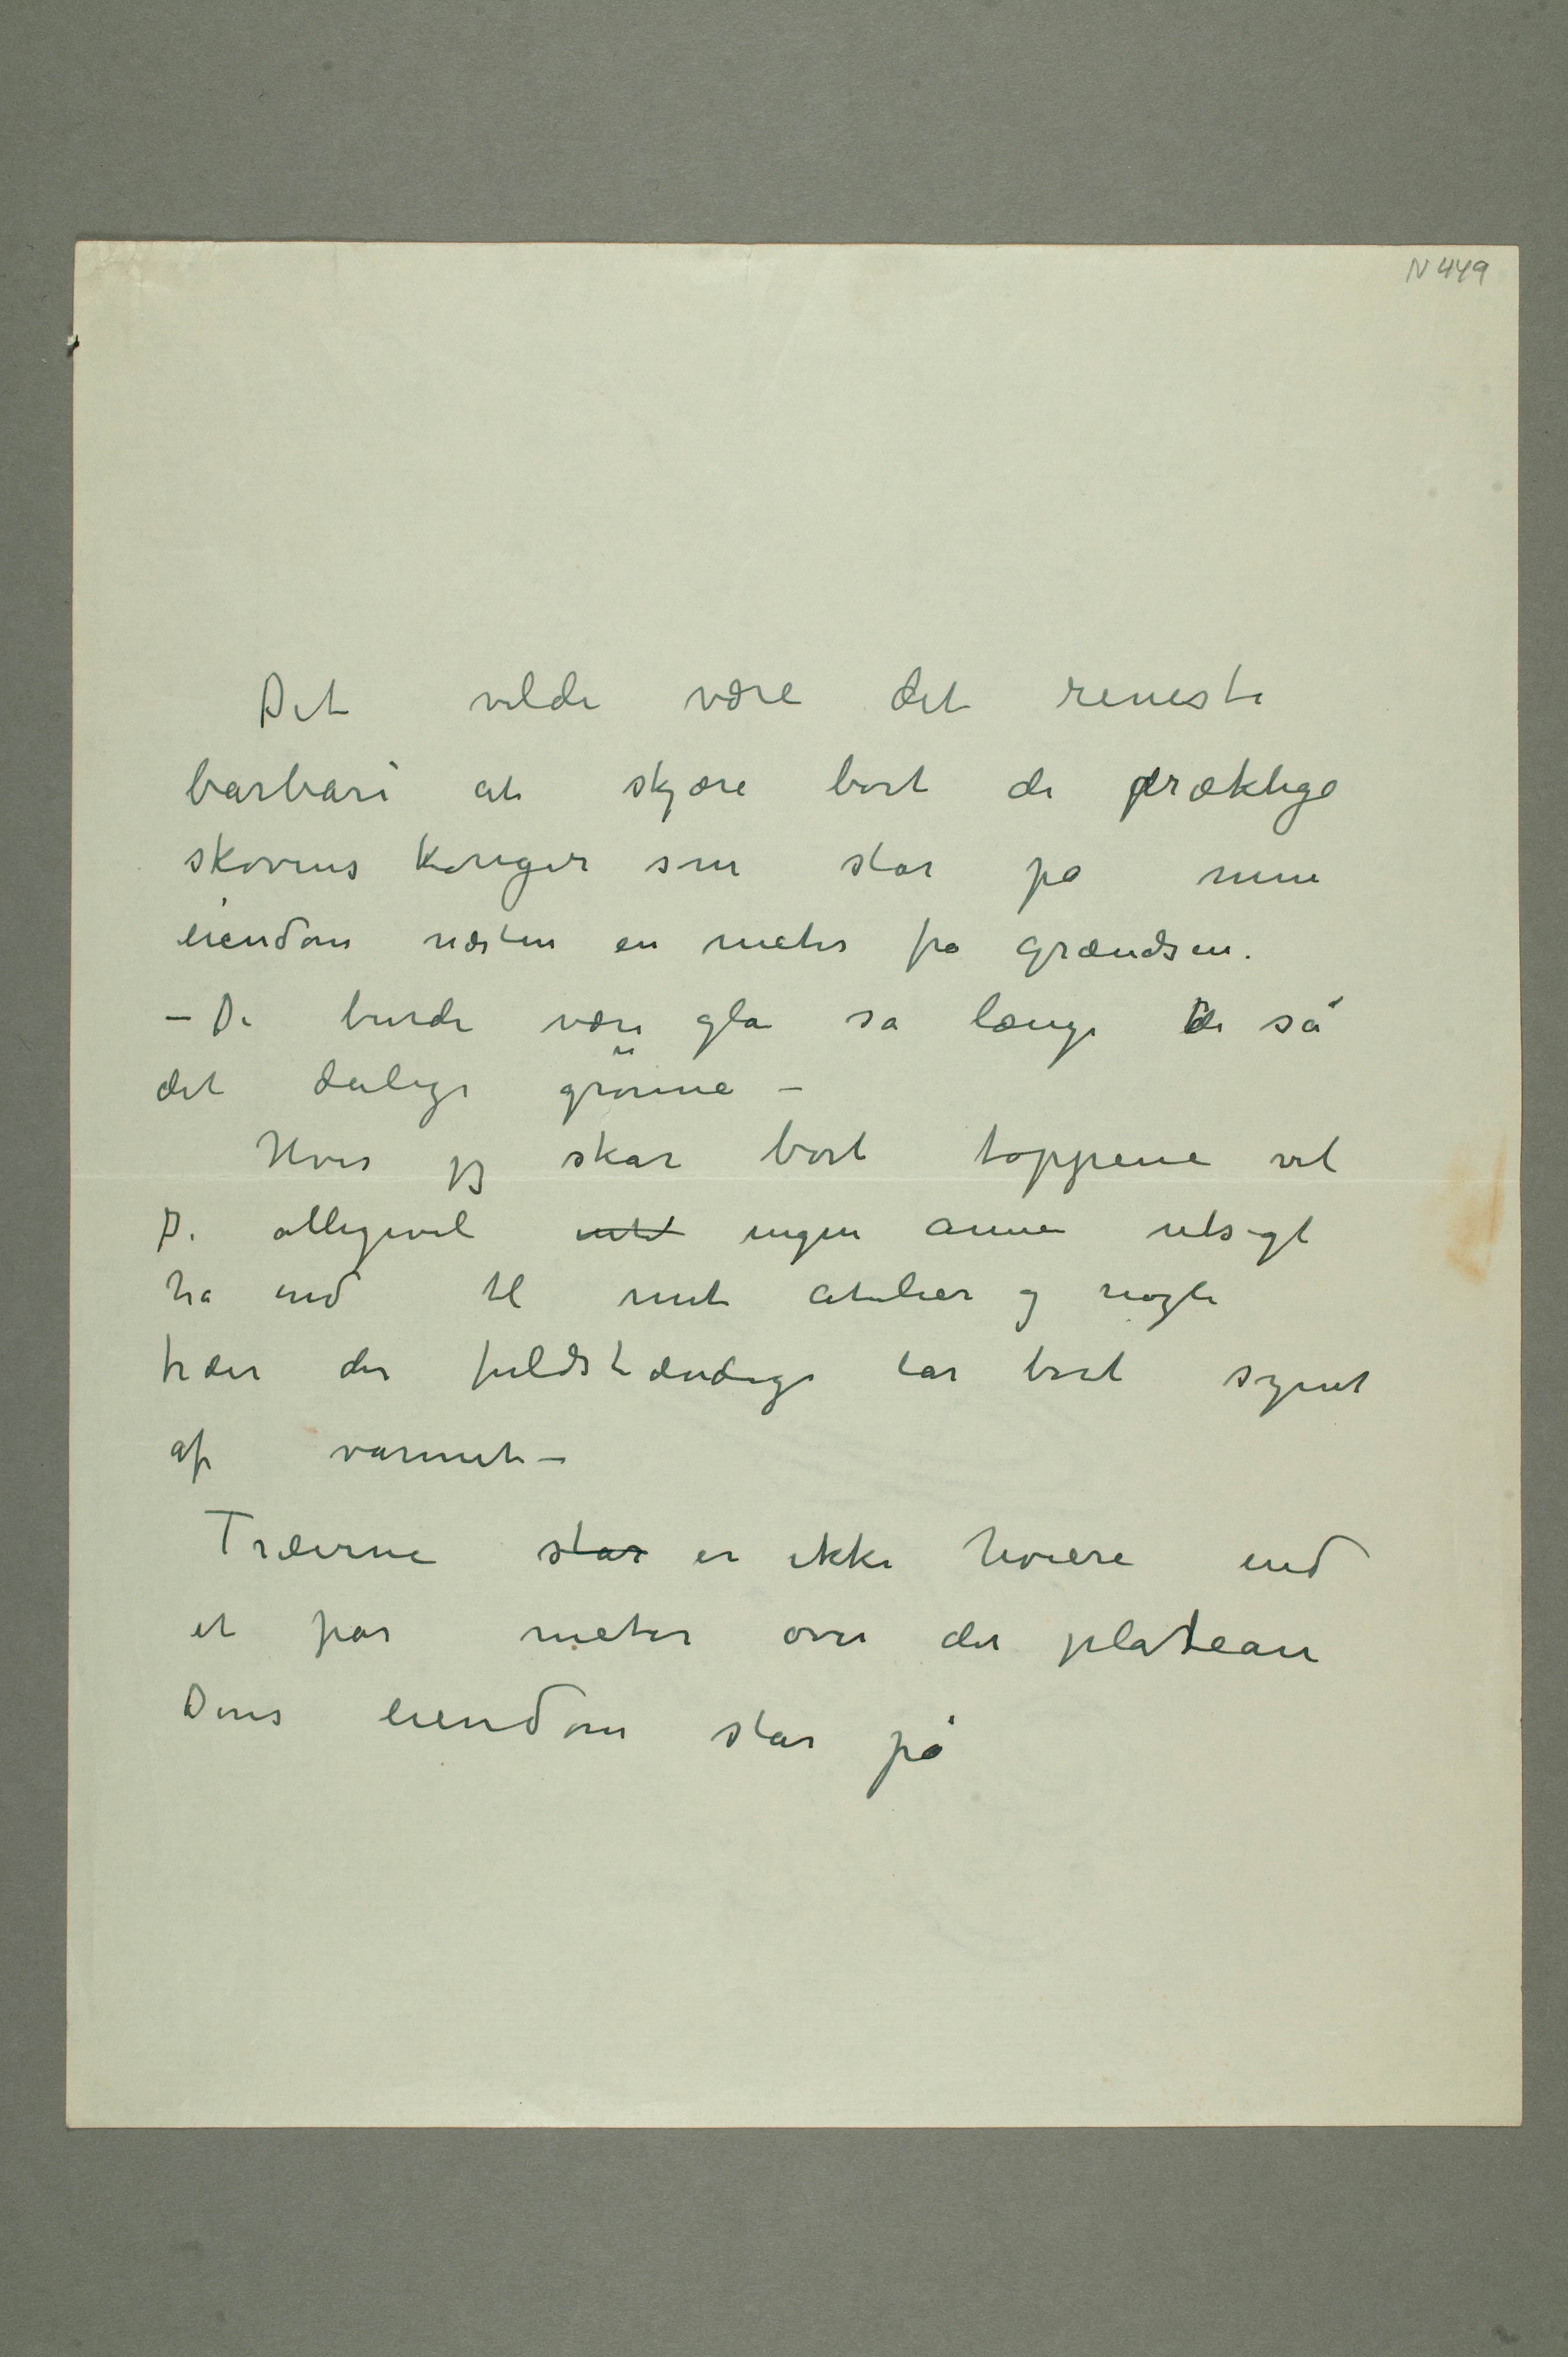 N 449
Det vilde være det reneste
barbari at skjære bort de præktige
skovens konger som står på min
eiendom næsten en meter fra grændsen.
– De burde være gla sa længe De så
det deilige grønne –
Hvis jeg skar bort toppene vil
De alligevel intet ingen annen utsigt
ha end til mit atelier og nogle
træer der fuldstændige tar bort synet
af vannet –
Træerne står er ikke høiere end
et par meter over det plateau
Deres eiendom står på